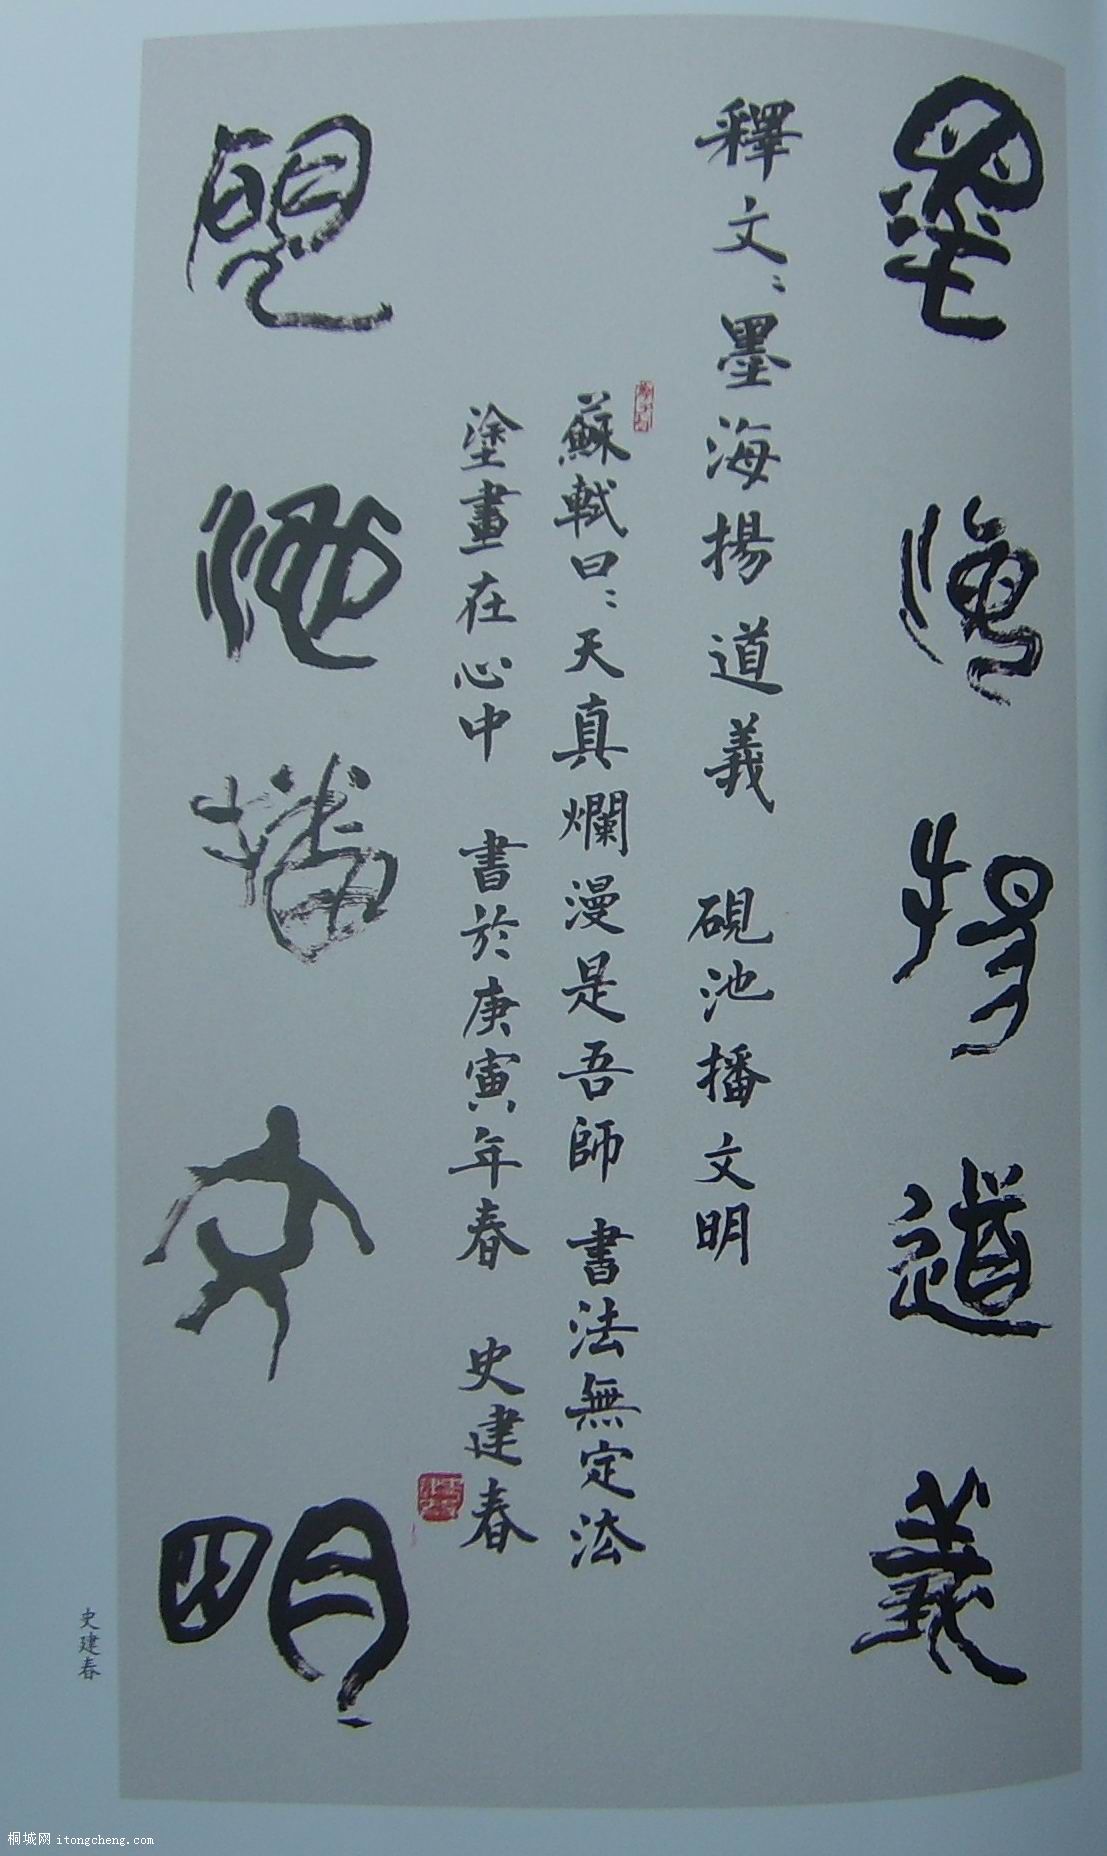 墨海揚道義
釋文：墨海揚道義 硯池播文明
蘇軾曰：天真爛漫是吾師 書法無定法
塗畫在心中 書於庚寅年春 史建春
硯池播文明
史建春
桐城网 itongcheng.com